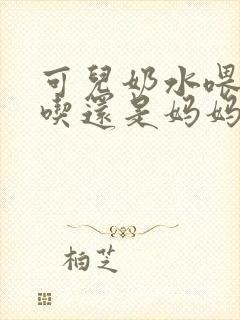 可兒奶水喂
喫還是妈妈
柏芝